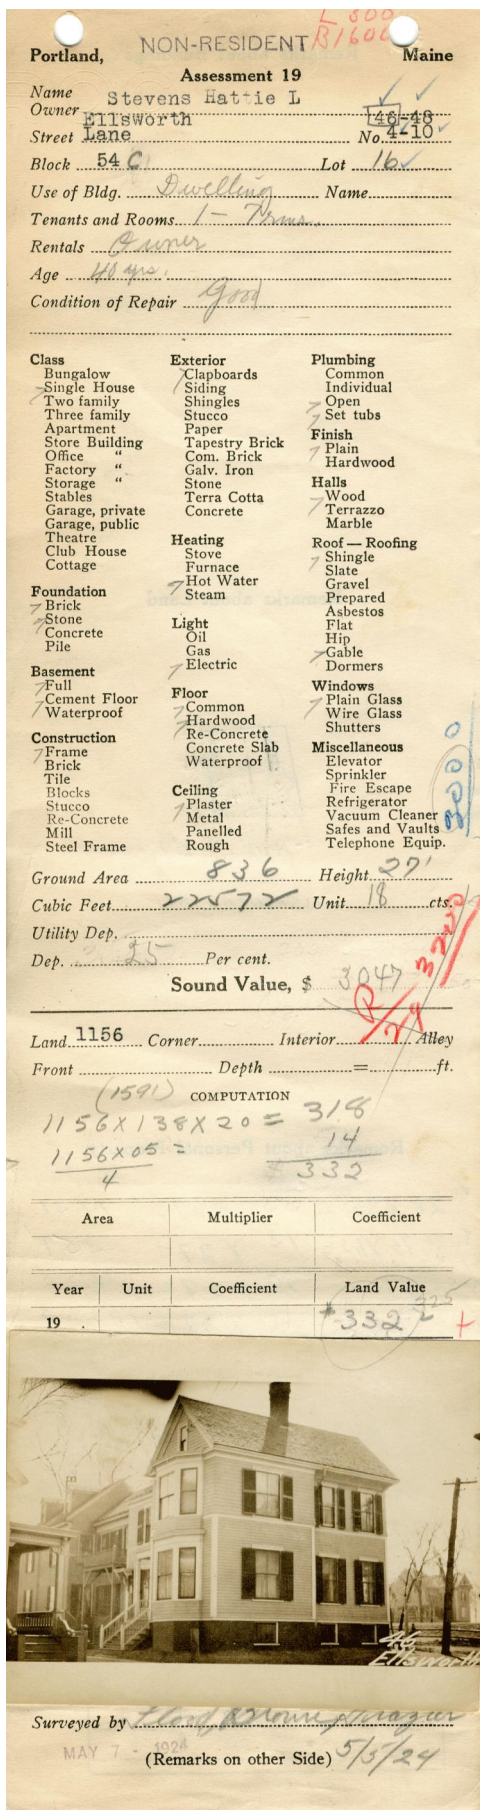 L 800
NON-RESIDENT B 1600
Portland, Maine
Assessment 19
Name Stevens Hattie L
Owner Ellsworth 46-48
Street Lane No. 4-10
Block 54 C Lot 16
Use of Bldg. Dwelling Name
Tenants and Rooms 1 - 7 rms.
Rentals Owner
Age 40 yrs.
Condition of Repair Good
Class
Bungalow
Single House
Two family
Three family
Apartment
Store Building
Office "
Factory "
Storage "
Stables
Garage, private
Garage, public
Theatre
Club House
Cottage
Foundation
Brick
Stone
Concrete
Pile
Basement
Full
Cement Floor
Waterproof
Construction
Frame
Brick
Tile
Blocks
Stucco
Re-Concrete
Mill
Steel Frame
Exterior
Clapboards
Siding
Shingles
Stucco
Paper
Tapestry Brick
Com. Brick
Galv. Iron
Stone
Terra Cotta
Concrete
Heating
Stove
Furnace
Hot Water
Steam
Light
Oil
Gas
Electric
Floor
Common
Hardwood
Re-Concrete
Concrete Slab
Waterproof
Ceiling
Plaster
Metal
Panelled
Rough
Plumbing
Common
Individual
Open
Set tubs
Finish
Plain
Hardwood
Halls
Wood
Terrazzo
Marble
Roof — Roofing
Shingle
Slate
Gravel
Prepared
Asbestos
Flat
Hip
Gable
Dormers
Windows
Plain Glass
Wire Glass
Shutters
Miscellaneous
Elevator
Sprinkler
Fire Escape
Refrigerator
Vacuum Cleaner
Safes and Vaults
Telephone Equip.
3000
Ground Area 836 Height 27'
Cubic Feet 22572 Unit 18 cts.
Utility Dep.
Dep. 25 Per cent.
Sound Value, $ 3047
R/29 3200
Land 1156 Corner Interior Alley
Front Depth = ft.
(1591) COMPUTATION
1156 X 138 X 20 = 318
1156 X 05 = 14
4 $ 332
Area Multiplier Coefficient
Year Unit Coefficient Land Value
325
19 . $ 332 +
46
Ellsworth
Surveyed by
MAY 7 - 1924
(Remarks on other Side) 5/5/24